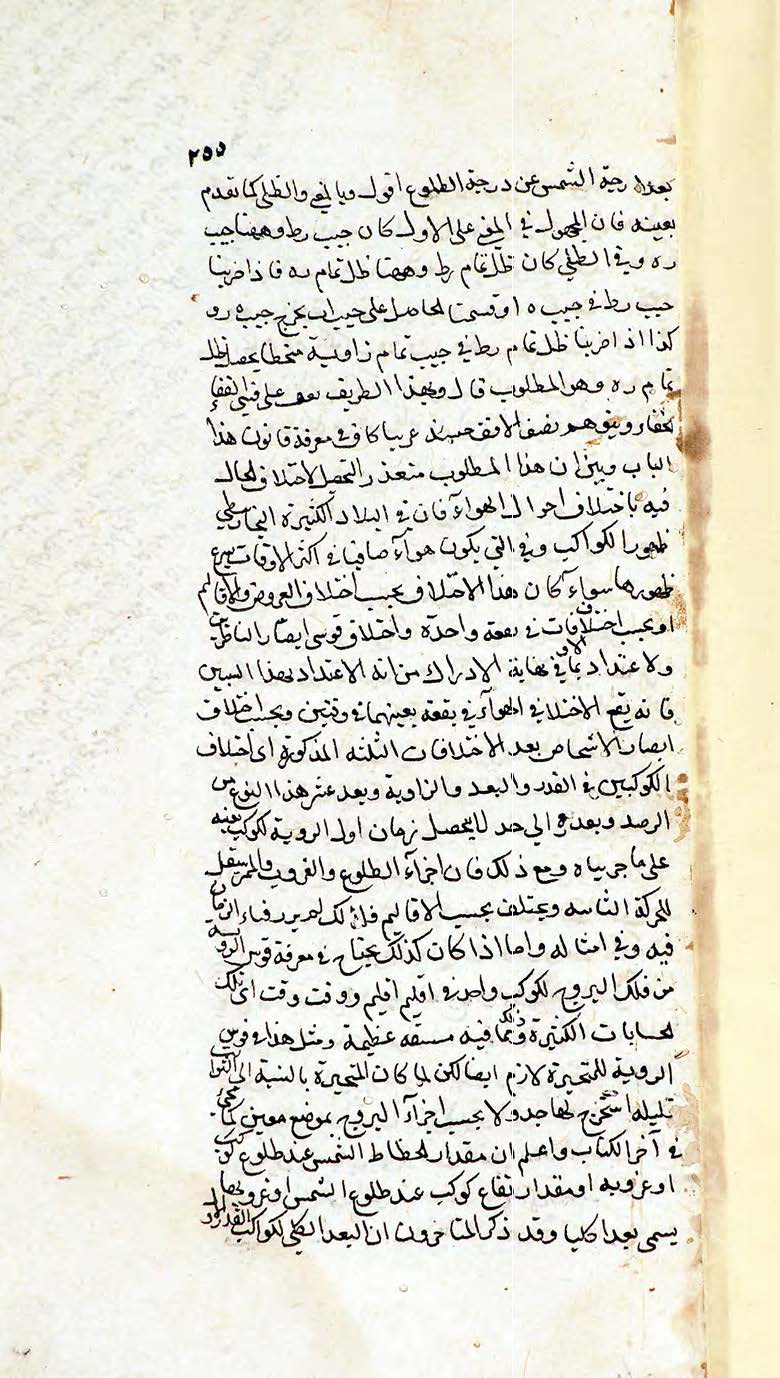 ٢٥٥
بعد درجة الشمس عن درجة الطلوع اقول وبالمغني والظلي كما تقدم
بعينه فان المجهول في المغني على الاول كان جيب رط وههنا جيب
ره وفي الظلي كان ظل تمام رط وههنا ظل تمام ره فاذا ضربنا
جيب رط في جيب ه او قسمنا الحاصل على جيب اب يخرج جيب ه رو
كذا اذا ضربنا ظل تمام رط في جيب تمام زاوية منحطا يحصل ظل
تمام ره وهو المطلوب قال وبهذا الطريق على
نصف الافق حينئذ غربيا كاف في معرفة قانون هذا
الباب وبين ان هذا المطلوب متعذر التحصل لاختلاف الحال
فيه باختلاف احوال الهواء فان في البلاد الكثيرة البخار يبطي
ظهور الكواكب وفي التي يكون هواء صافيا في اكثر الاوقات يسرع
ظهورها سواء كان هذا الاختلاف بحسب اختلاف العروض والاقاليم
او بحسب اختلاف الاوقات في بقعة واحدة واختلاف قوى ابصار الناظرين
ولا عتداد بما في نهاية الادراك من انه الاعتداد بهذا السبين
فانه يقع الاختلاف في الهواء في بقعة بعينها في وقتين وبحسب اختلاف
ابصار الاشخاص بعد الاختلافات الثلثة المذكورة اى اختلاف
الكوكبين في القدر والبعد والزاوية وبعد عثر هذا النوع من
الرصد وبعده الى حد لا يحصل زمان اول الروية لكوكب بعينه
على ما جربناه ومع ذلك فان اجزاء الطلوع والغروب والممر ينتقل
للحركة الثانيه ويختلف بحسب الاقاليم فلذلك لم ير افناء الزمان
فيه وفي امثاله واما اذا كان كذلك يحتاج في معرفة قوس الروية
من فلك البروج لكوكب واحد في اقليم اقليم ووقت وقت الى تلك
الحسابات الكثيرة وذلك مما فيه مشقه عظيمة ومثل هذا في قوس
الروية للمتحيرة لازم ايضا لكن لما كان المتحيرة بالنسبة الى الثوابت
قليله استخرج لها جدولا بحسب اجزاء البروج بموضع معين كما يجئ
في آخر الكتاب واعلم ان مقدار انحطاط الشمس عند طلوع كوكب
او غروبه او مقدار ارتفاع كوكب عند طلوع الشمس او غروبها
يسمى بعدا كليا وقد ذكر المتاخرون ان البعد الكلي لكواكب القدر الاول